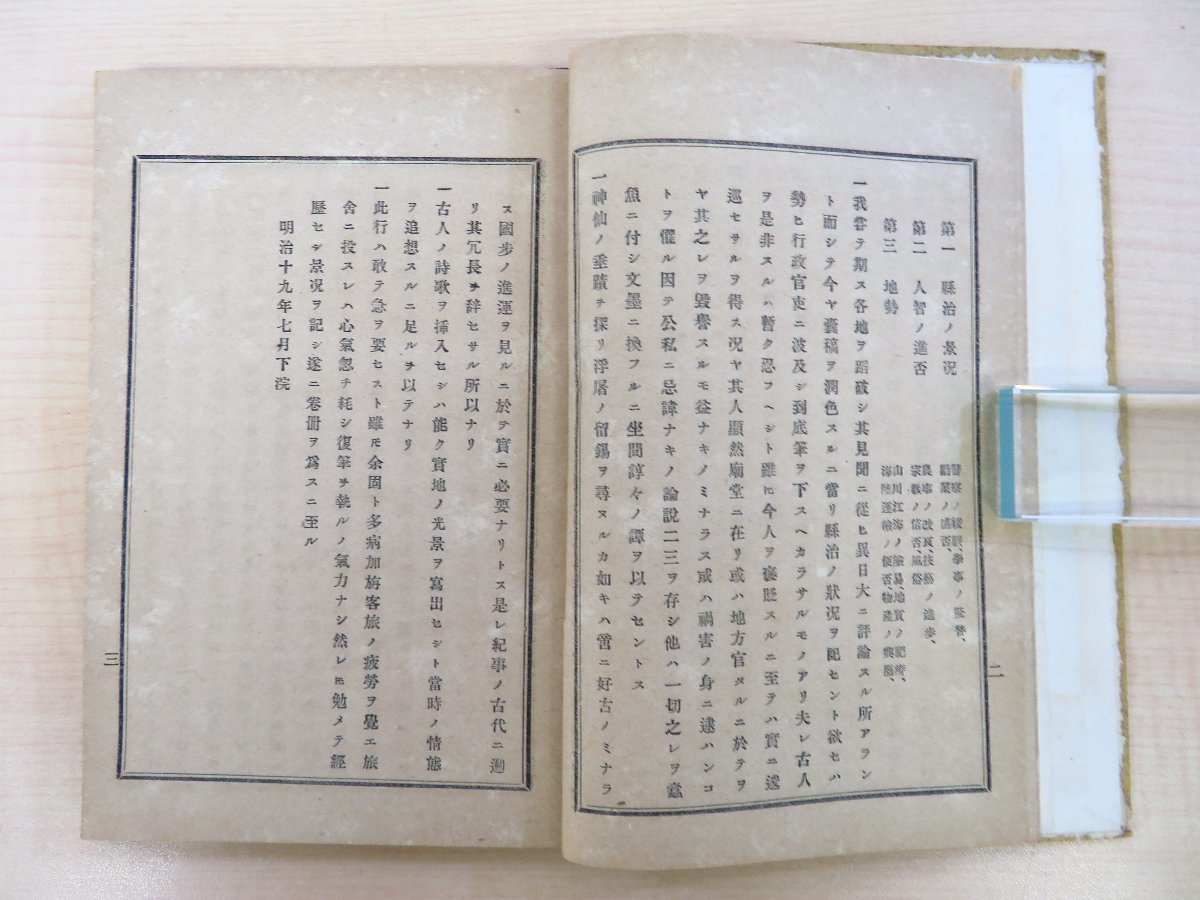 二
第一 縣治ノ景況
警察ノ緩嚴、學事ノ盛替、
勸業ノ盛否、
第二 人智ノ進否
農事ノ改良、技藝ノ進歩、
宗教ノ信否、風俗
第三 地勢
山川江海ノ險易、地質ノ肥瘠、
海陸運輸ノ便否、物產ノ興廢、
一我嘗テ期ス各地ヲ踏破シ其見聞ニ從ヒ異日大ニ評論スル所アラン
ト而シテ今ヤ嚢稿ヲ潤色スルニ當リ縣治ノ狀況ヲ記セント欲セハ
勢ヒ行政官吏ニ波及シ到底筆ヲ下スヘカラサルモノアリ夫レ古人
ヲ是非スルハ暫ク忍フヘシト雖𪜈今人ヲ褒貶スルニ至テハ實ニ逡
巡セサルヲ得ス況ヤ其人顯然廟堂ニ在リ或ハ地方官タルニ於テヲ
ヤ其之レヲ毀譽スルモ益ナキノミナラス或ハ禍害ノ身ニ逮ハンコ
トヲ懼ル因テ公私ニ忌諱ナキノ論說二三ヲ存シ他ハ一切之レヲ蠧
魚ニ付シ文墨ニ換フルニ坐間諄々ノ譚ヲ以テセントス
一神仙ノ垂蹟ヲ探リ浮屠ノ留錫ヲ尋ヌルカ如キハ啻ニ好古ノミナラ
ス國步ノ進運ヲ見ルニ於ヲ實ニ必要ナリトス是レ紀事ノ古代ニ遡
リ其冗長ヲ辭セサル所以ナリ
一古人ノ詩歌ヲ挿入セシハ能ク實地ノ光景ヲ寫出セシト當時ノ情態
ヲ追想スルニ足ルヲ以テナリ
一此行ハ敢テ急ヲ要セスト雖モ余固ト多病加旃客旅ノ疲勞ヲ覺エ旅
舍ニ投スレハ心氣忽チ耗シ復筆ヲ執ルノ氣力ナシ然レ𪜈勉メテ經
歷セシ景況ヲ記シ遂ニ卷冊ヲ爲スニ至ル
明治十九年七月下浣
三